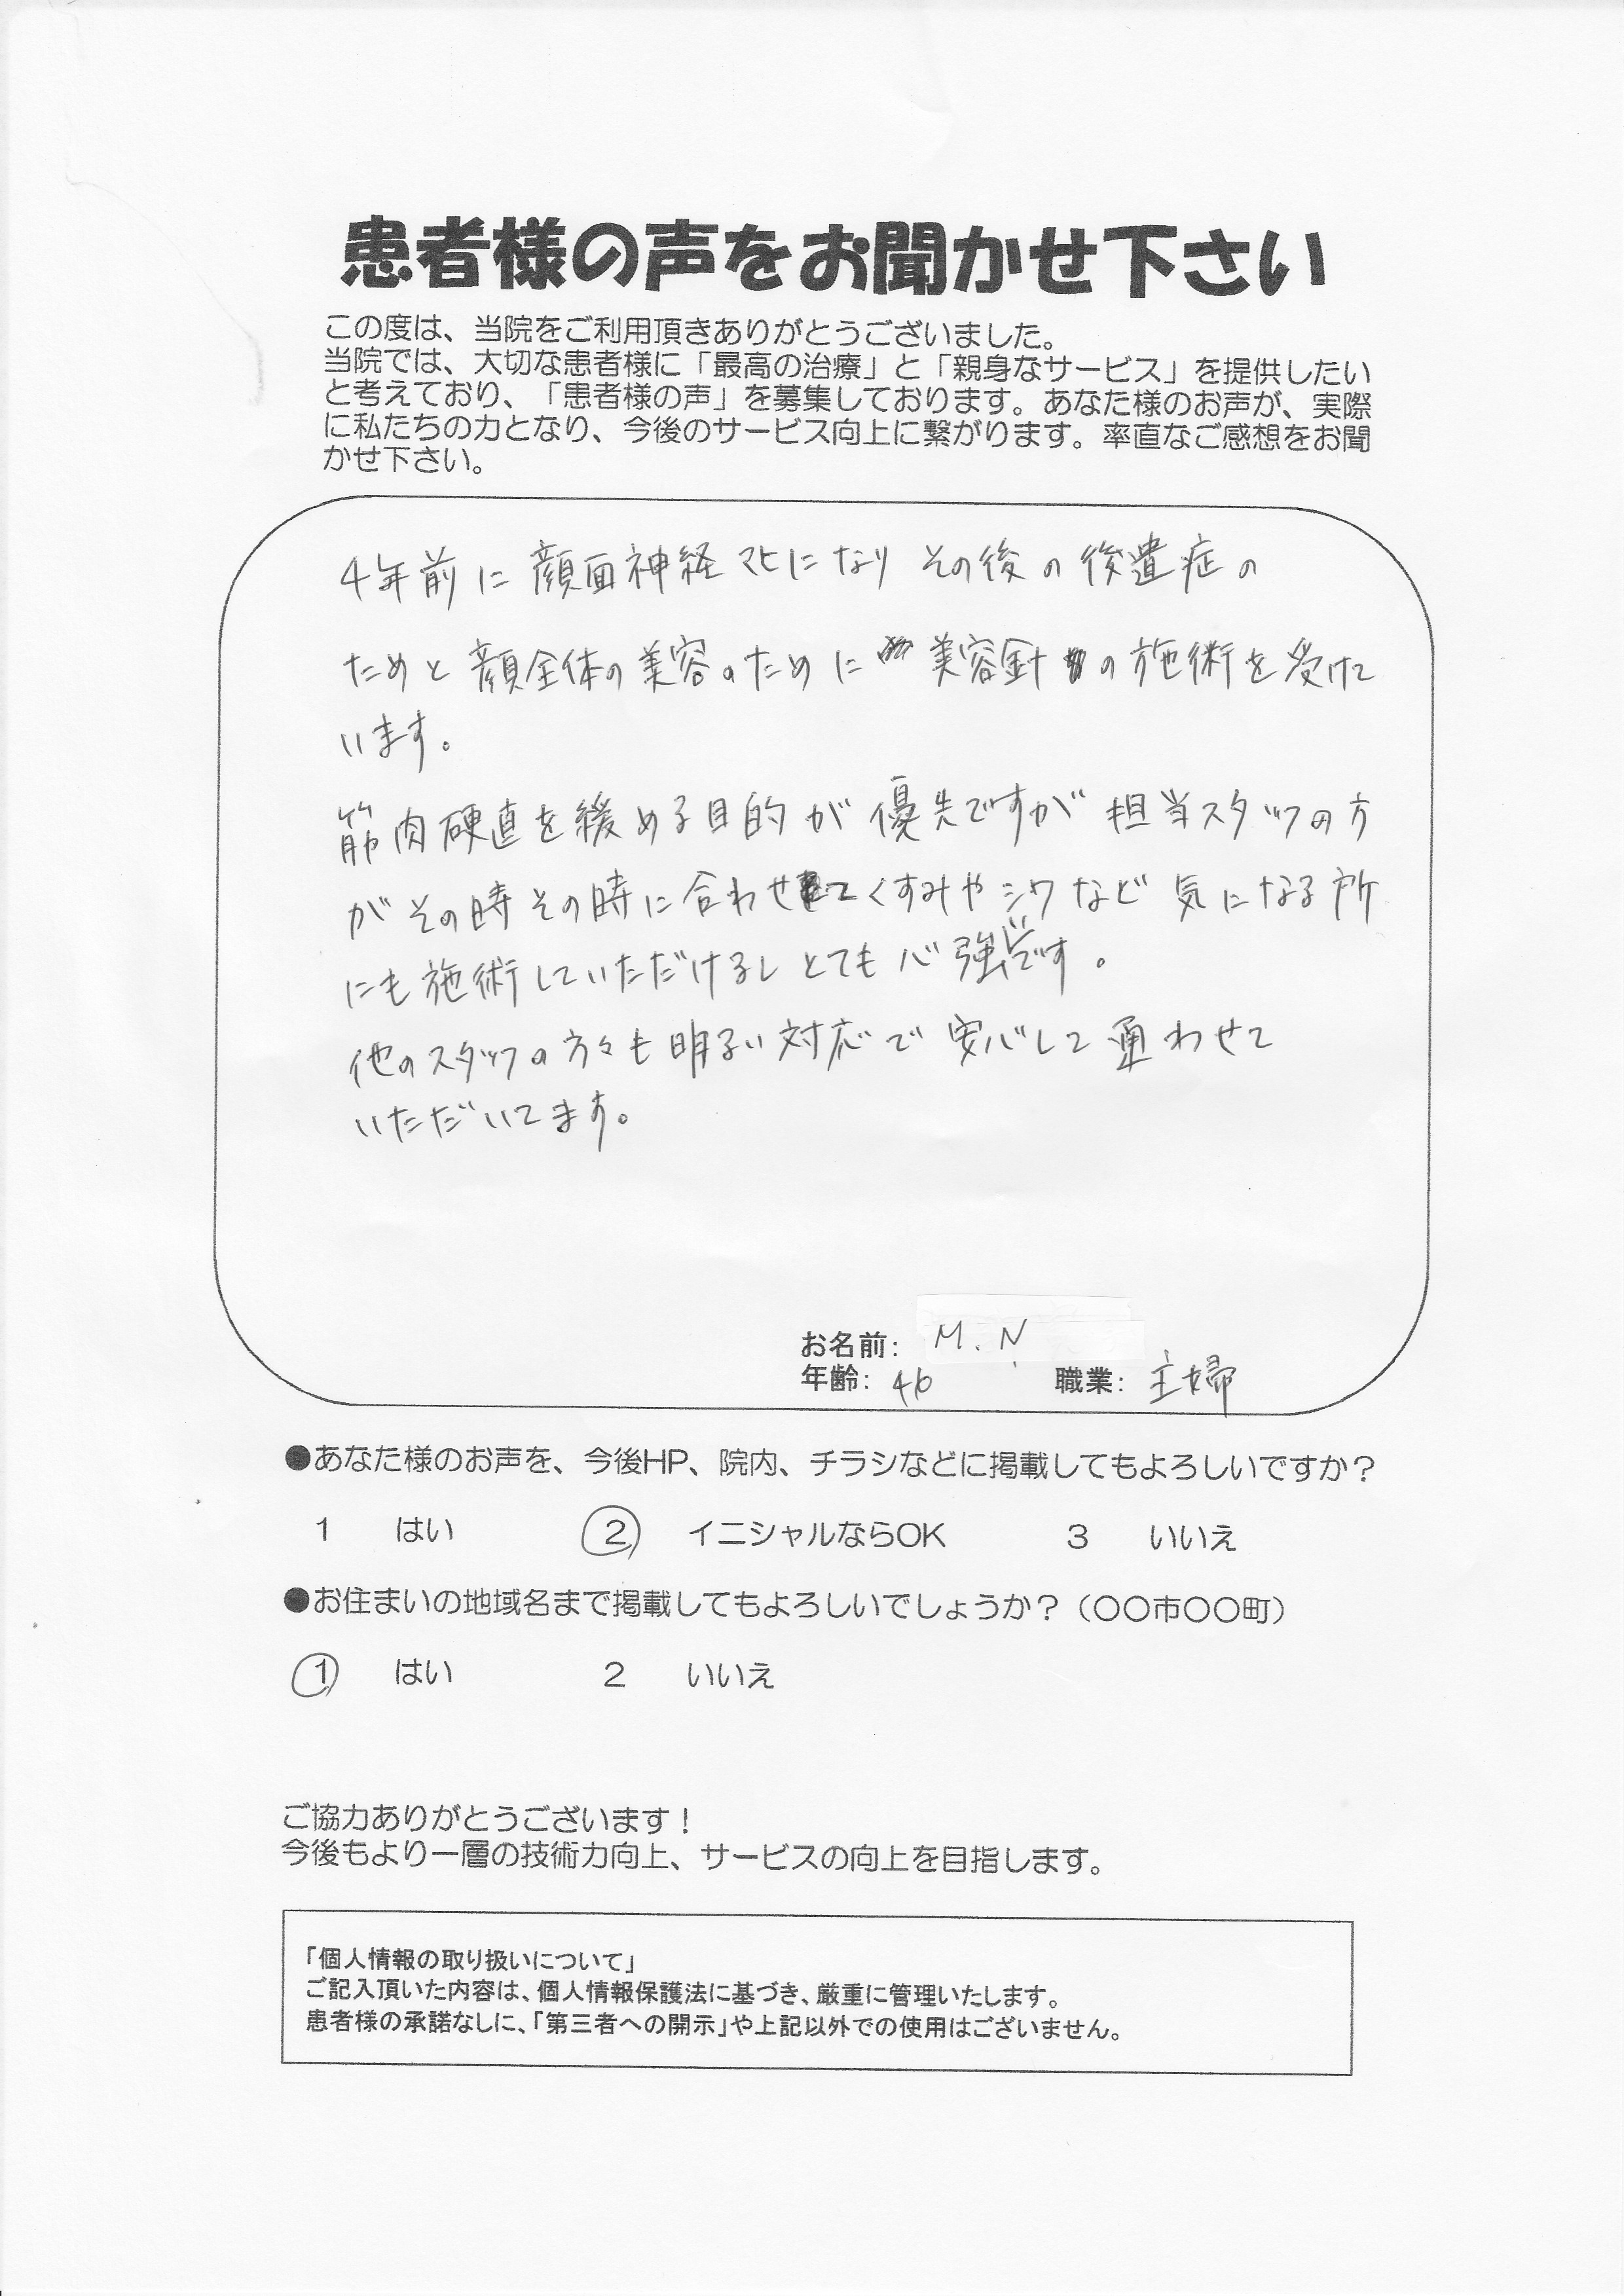 患者様の声をお聞かせ下さい
この度は、当院をご利用頂きありがとうございました。
当院では、大切な患者様に「最高の治療」と「親身なサービス」を提供したい
と考えており、「患者様の声」を募集しております。あなた様のお声が、実際
に私たちの力となり、今後のサービス向上に繋がります。率直なご感想をお聞
かせ下さい。
4年前に顔面神経マヒになり その後の後遺症の
ためと顔全体の美容のために 美容針の施術を受けて
います。
筋肉硬直を緩める目的が優先ですが 担当スタッフの方
がその時その時に合わせてくすみやシワなど気になる所
にも施術していただけるしとても心強いです。
他のスタッフの方々も明るい対応で安心して通わせて
いただいてます。
お名前: M.N
年齢: 46 職業: 主婦
●あなた様のお声を、今後HP、院内、チラシなどに掲載してもよろしいですか?
1 はい 2 イニシャルならOK 3 いいえ
●お住まいの地域名まで掲載してもよろしいでしょうか?(〇〇市〇〇町)
1 はい 2 いいえ
ご協力ありがとうございます!
今後もより一層の技術力向上、サービスの向上を目指します。
「個人情報の取り扱いについて」
ご記入頂いた内容は、個人情報保護法に基づき、厳重に管理いたします。
患者様の承諾なしに、「第三者への開示」や上記以外での使用はございません。